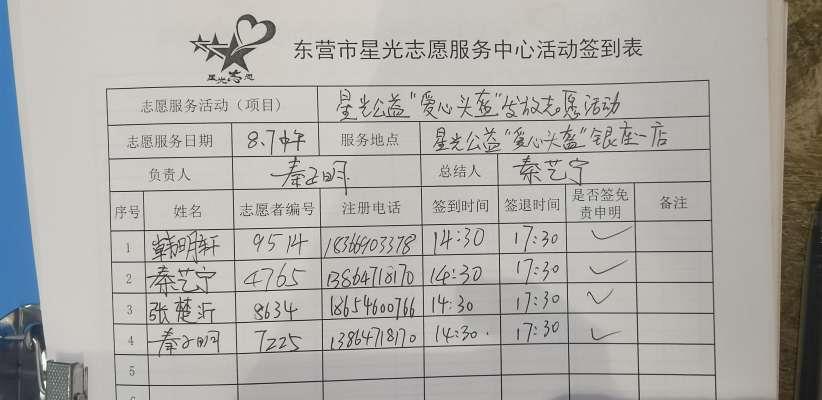 星光志愿
东营市星光志愿服务中心活动签到表
志愿服务活动（项目） 星光公益"爱心头盔"发放志愿活动
志愿服务日期 8.7中午 服务地点 星光公益"爱心头盔"银座一店
负责人 秦子明 总结人 秦艺宁
序号 姓名 志愿者编号 注册电话 签到时间 签退时间 是否签免责申明 备注
1 韩明轩 9514 18366903378 14:30 17:30 ✓
2 秦艺宁 4765 13864718170 14:30 17:30 ✓
3 张楚沂 8634 18654600766 14:30 17:30 ✓
4 秦子明 7225 13864718170 14:30 17:30 ✓
5